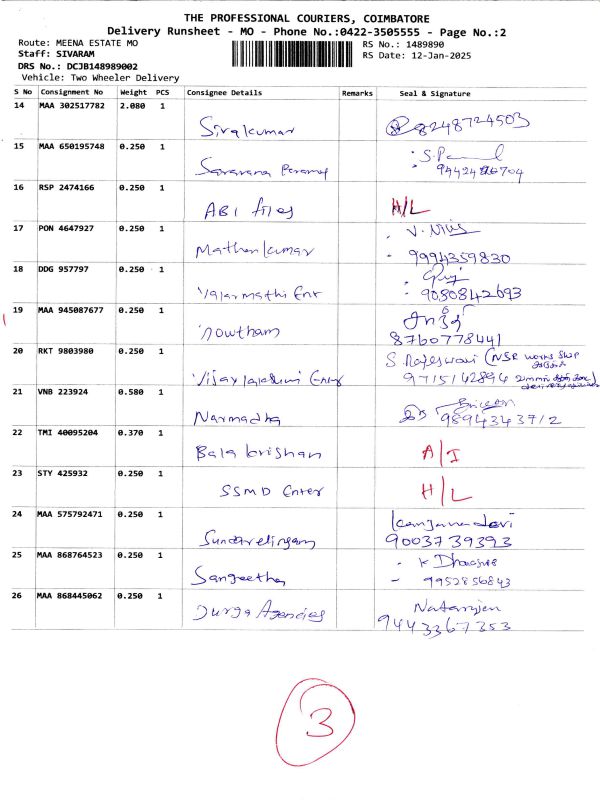 THE PROFESSIONAL COURIERS, COIMBATORE
Delivery Runsheet - MO - Phone No.:0422-3505555 - Page No.:2
Route: MEENA ESTATE MO
RS No.: 1489890
Staff: SIVARAM
RS Date: 12-Jan-2025
DRS No.: DCJB148989002
Vehicle: Two Wheeler Delivery
S No Consignment No Weight PCS Consignee Details Remarks Seal & Signature
14 MAA 302517782 2.080 1
Sivakumar 8248724503
15 MAA 650195748 0.250 1
Saravana
16 RSP 2474166 0.250 1
ABI files H/L
17 PON 4647927 0.250 1
V.
Mathankumar 9994359830
18 DDG 957797 0.250 1
Valarmathi Ent 9080842693
19 MAA 945087677 0.250 1
Nowtham 8760778441
20 RKT 9803980 0.250 1
S. Rajeswari (NSR
Vijayalakshmi Enter 9715142894
21 VNB 223924 0.580 1
Narmadha 9894343712
22 TMI 40095204 0.370 1
Bala krishan A/I
23 STY 425932 0.250 1
SSMD Enter H/L
24 MAA 575792471 0.250 1
Kanjana devi
Sundarelingam 9003739393
25 MAA 868764523 0.250 1
K
Sangeetha 9952856843
26 MAA 868445062 0.250 1
Natarajen
Durga Agencies 9443367353
3